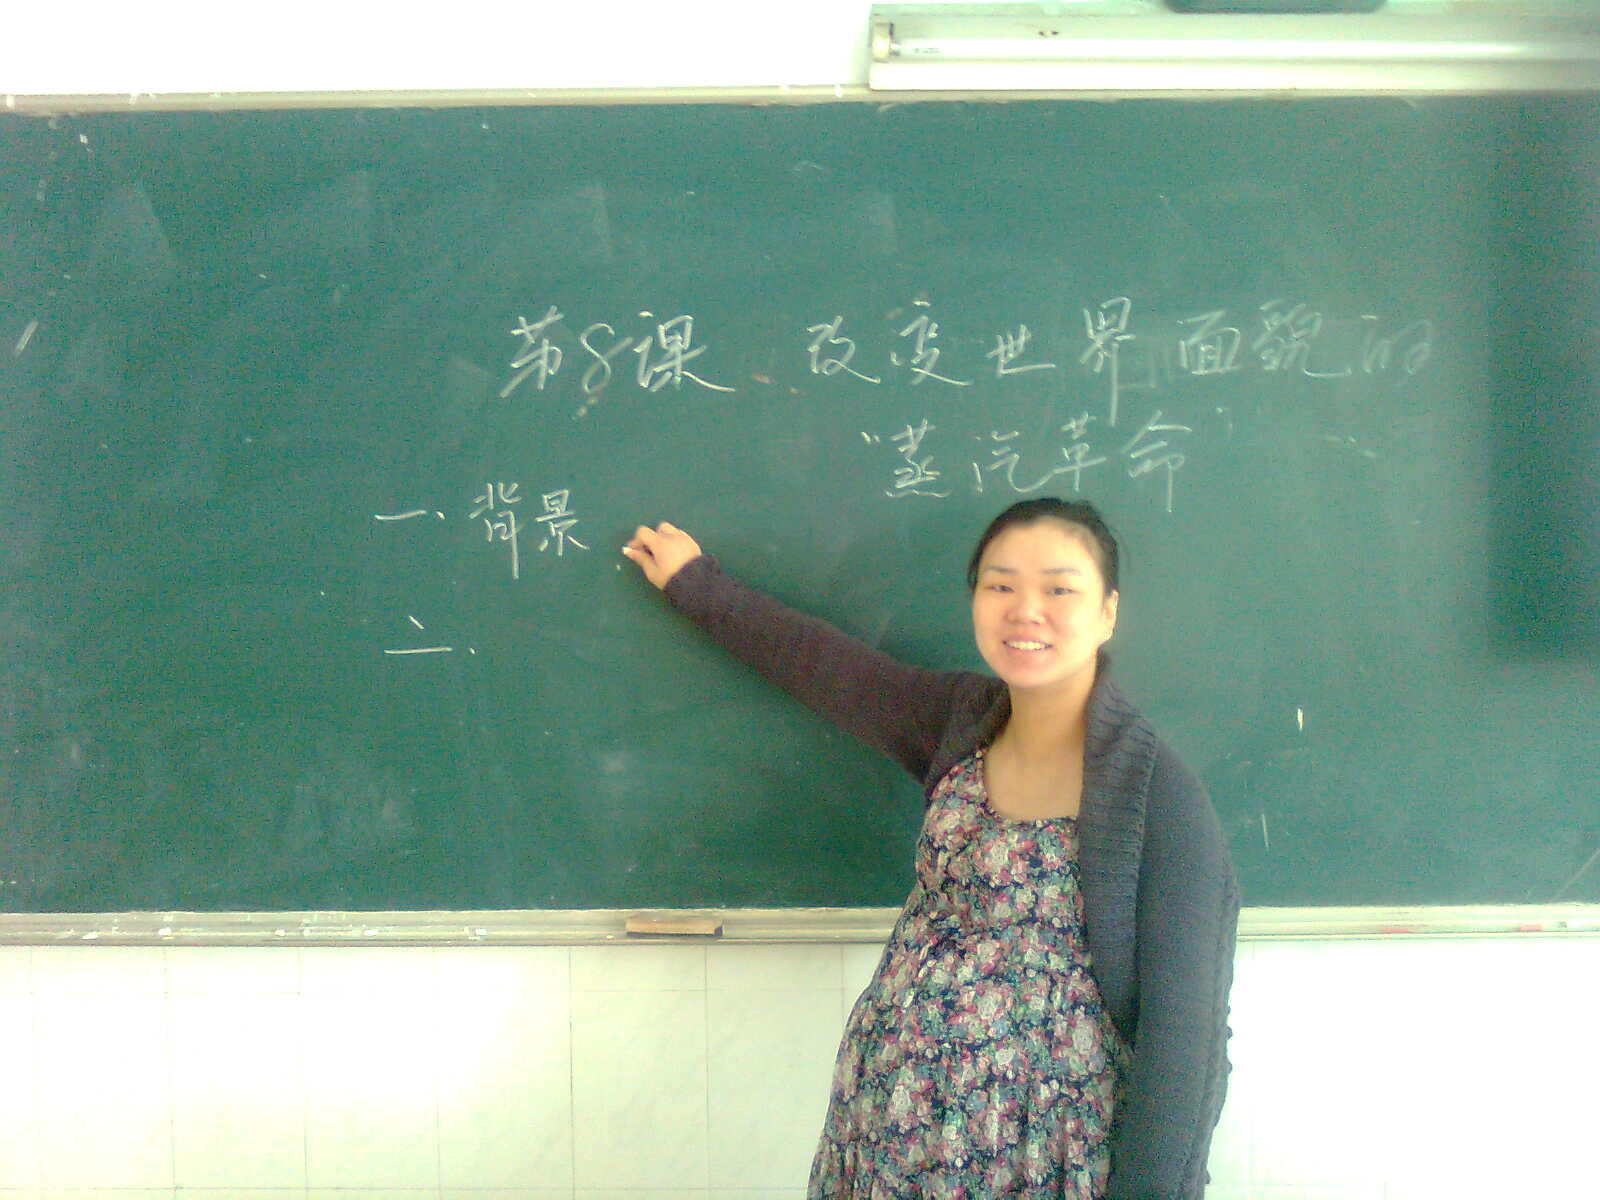 第8课 改变世界面貌的
"蒸汽革命"
一、背景
二、